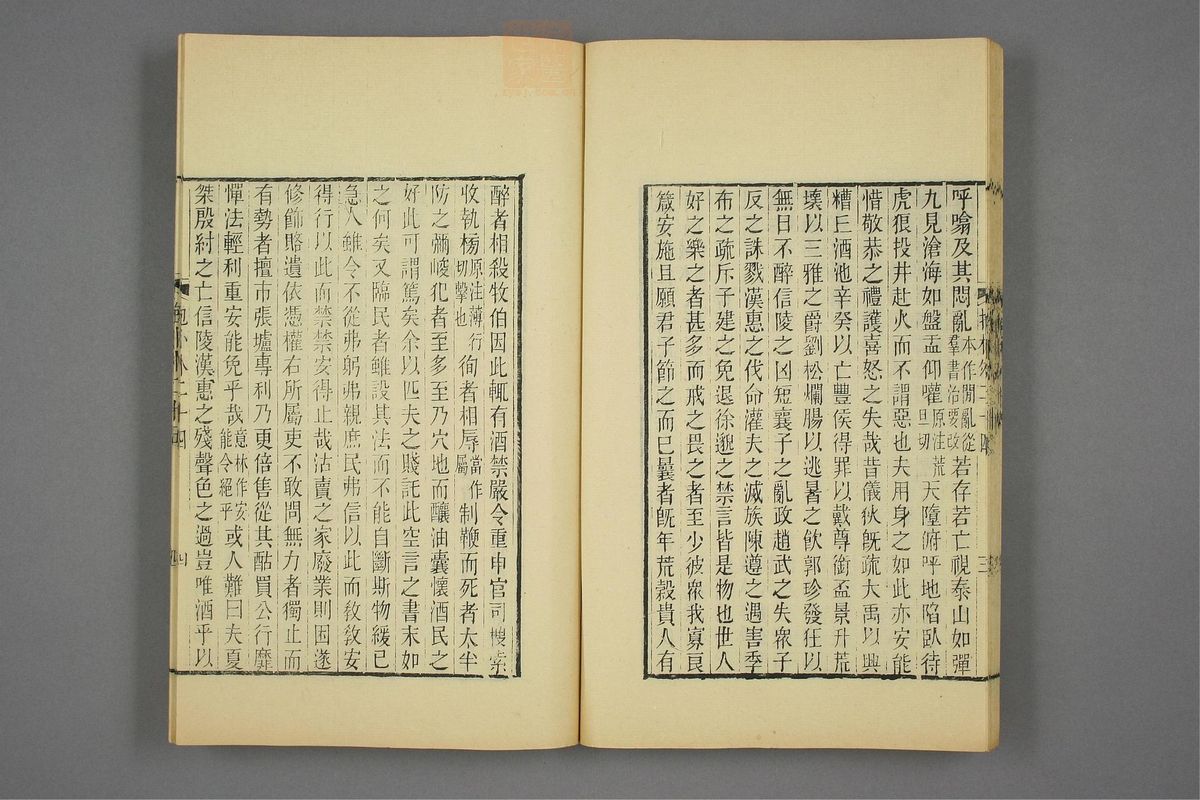 呼噏及其悶亂本作閒亂從羣書治要改若存若亡視泰山如彈
九見滄海如盤盂仰嚾原注荒旦切天墮俯呼地陷臥待
虎狼投井赴火而不謂惡也夫用身之如此亦安能
惜敬恭之禮護喜怒之失哉昔儀狄旣疏大禹以興
糟丘酒池辛癸以亡豐侯得罪以戴尊銜盃景升荒
壞以三雅之爵劉松爛腸以逃暑之飲郭珍發狂以
無日不醉信陵之凶短襄子之亂政趙武之失衆子
反之誅戮漢惠之伐命灌夫之滅族陳遵之遇害季
布之疏斥子建之免退徐邈之禁言皆是物也世人
好之樂之者甚多而戒之畏之者至少彼衆我寡良
箴安施且願君子節之而已曩者旣年荒穀貴人有
三
醉者相殺牧伯因此輒有酒禁嚴令重申官司搜索
收執榜原注薄行切擊也徇者相辱當作屬制鞭而死者太半
防之彌峻犯者至多至乃穴地而釀油囊懷酒民之
好此可謂篤矣余以匹夫之賤託此空言之書末如
之何矣又臨民者雖設其法而不能自斷斯物緩己
急人雖令不從弗躬弗親庶民弗信以此而敎敎安
得行以此而禁禁安得止哉沽賣之家廢業則困遂
修飾賂遺依憑權右所屬吏不敢問無力者獨止而
有勢者擅市張壚專利乃更倍售從其酤買公行靡
憚法輕利重安能免乎哉意林作安能令絕乎或人難曰夫夏
桀殷紂之亡信陵漢惠之殘聲色之過豈唯酒乎以
抱朴外二十四
四